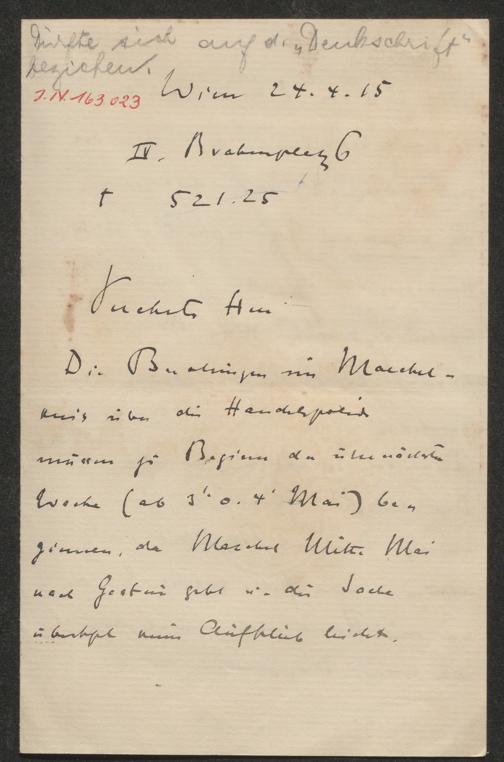 Dürfte sich auf d. „Denkschrift“
beziehen.
J.N. 163.023
Wien 24.4.15
IV. Brahmsplatz 6
t 521.25
Verehrter Herr
Die Beratungen im Marchet-
kreis über die Handelspolitik
müssen zu Beginn der übernächsten
Woche (ab 3. o. 4. Mai) be-
ginnen, da Marchet Mitte Mai
nach Gastein geht u. die Sache
überhpt keinen Aufschub leidet.